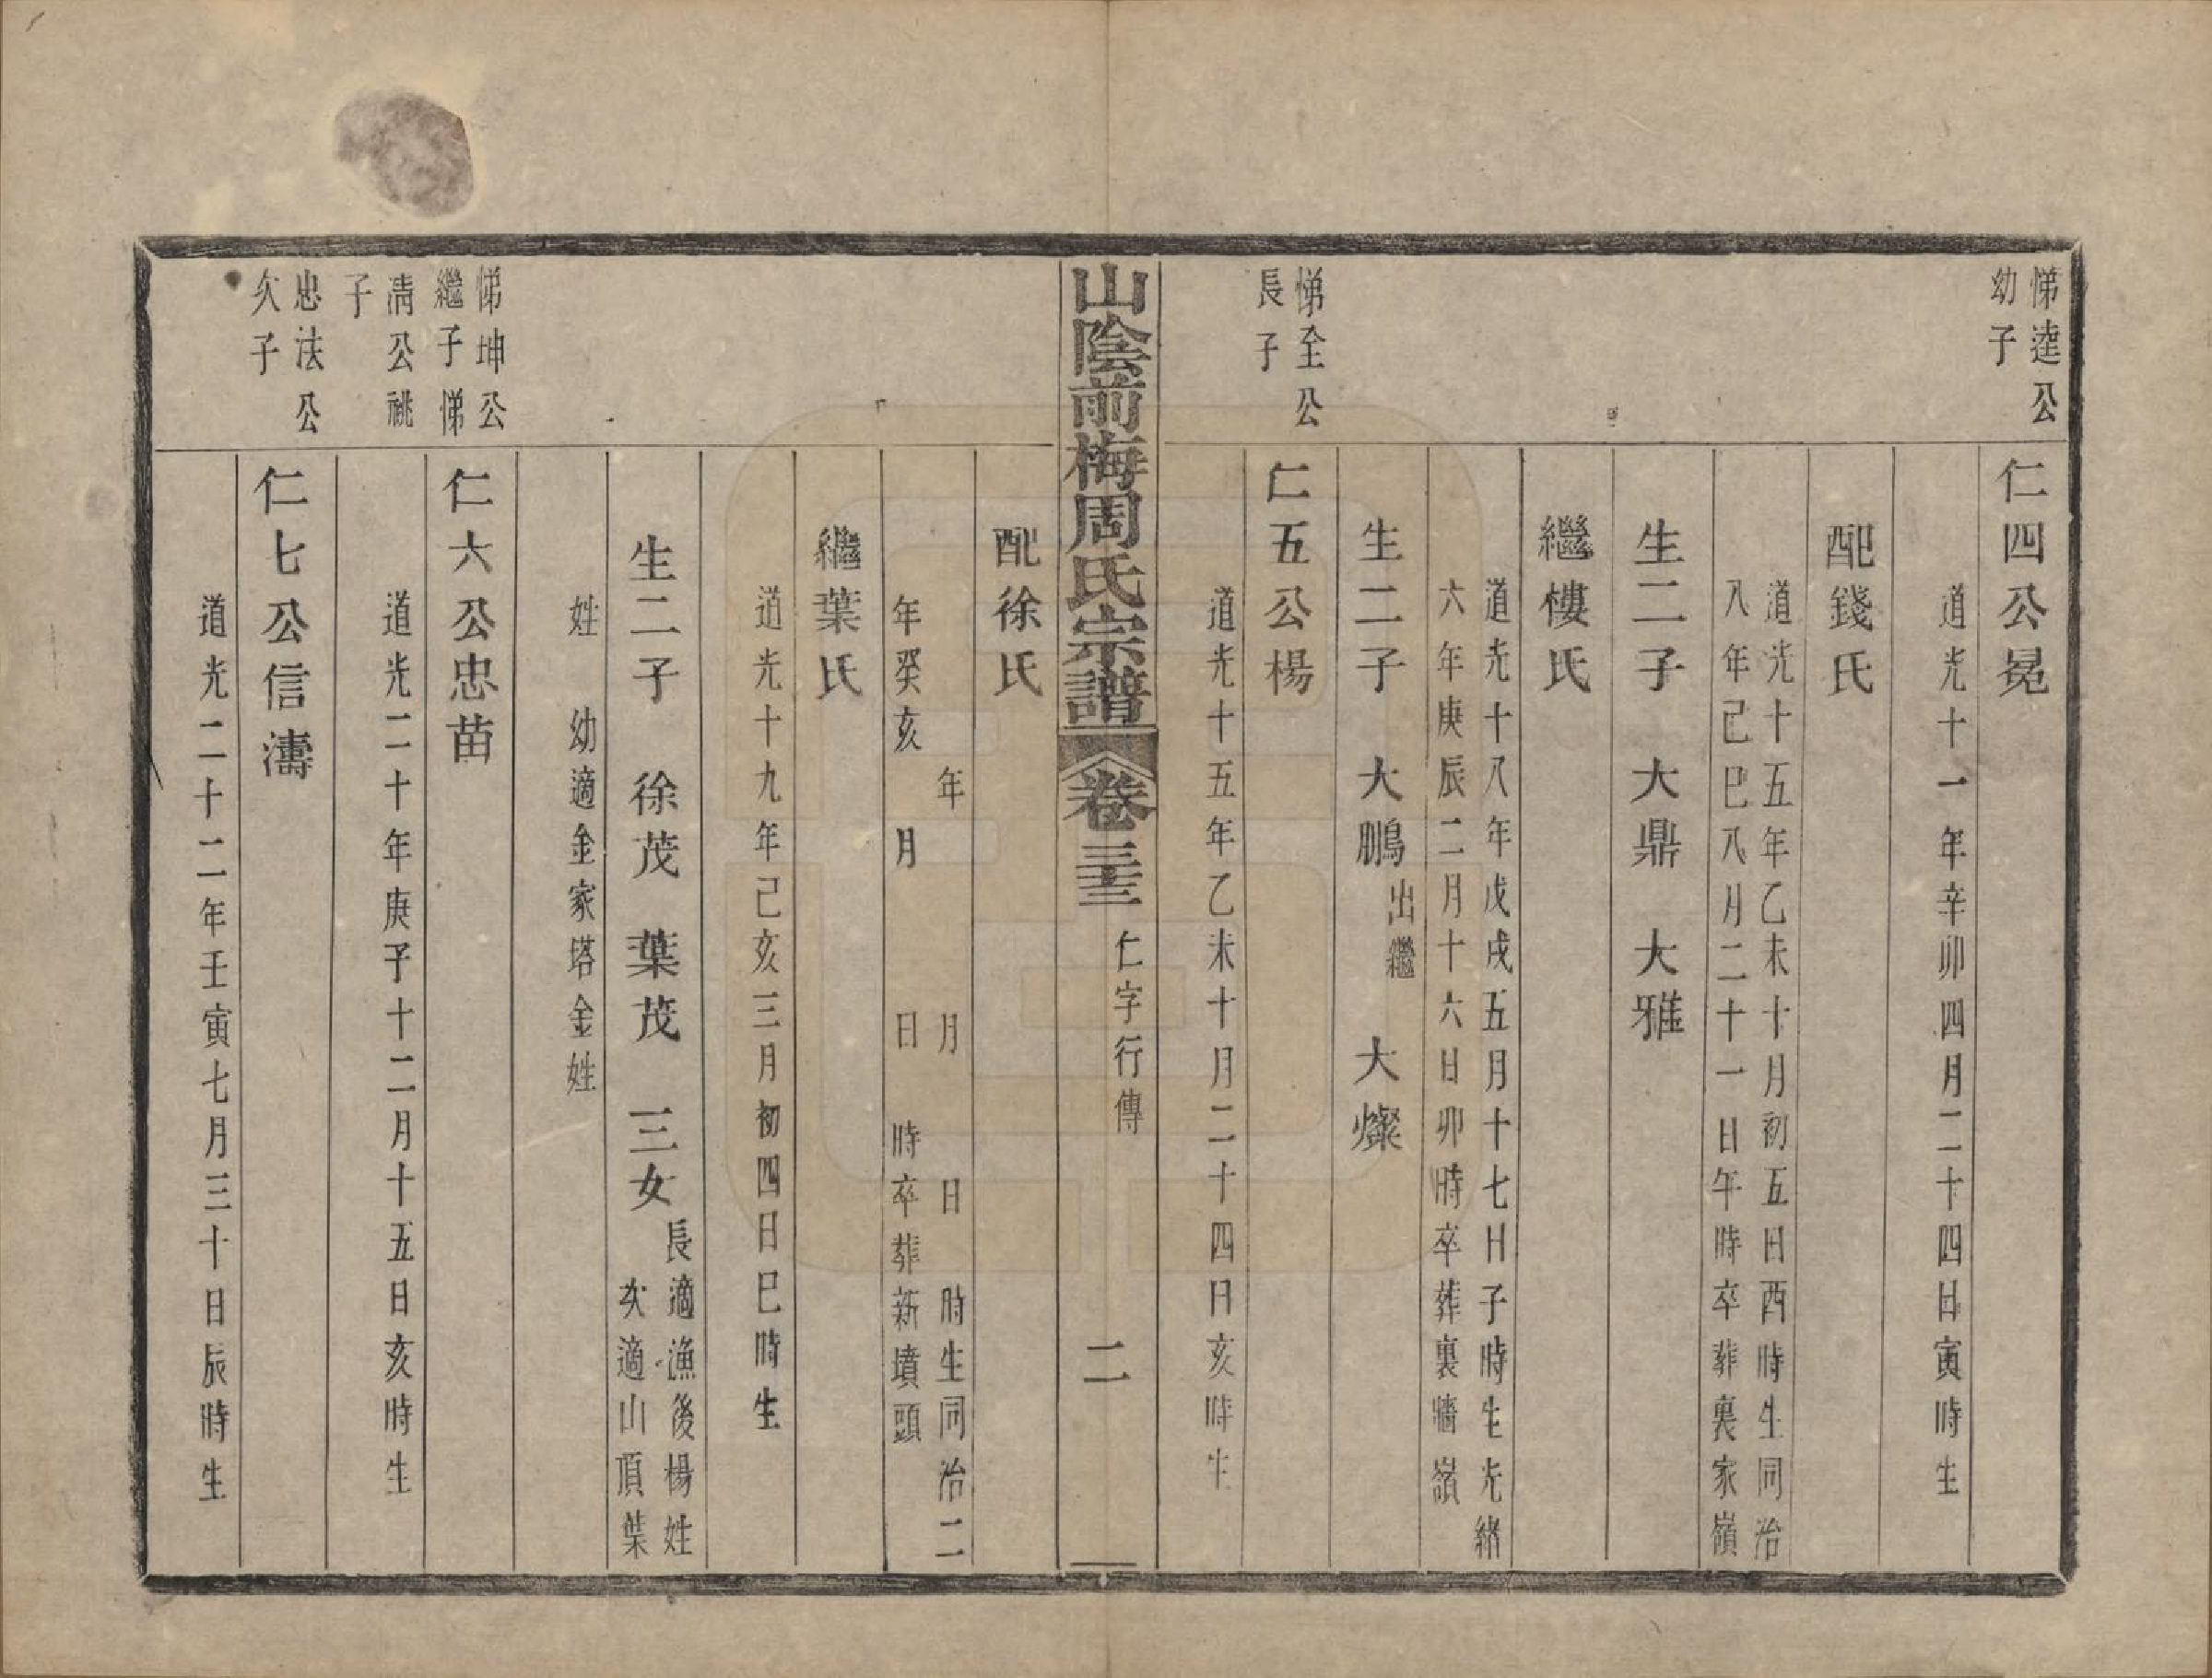 悌逵公
幼子
仁四公冕
道光十一年辛卯四月二十四日寅時生
配錢氏
道光十五年乙未十月初五日酉時生同治
八年己巳八月二十一日午時卒葬裏家嶺
生二子　大鼎　大雅
繼樓氏
道光十八年戊戌五月十七日子時生光緒
六年庚辰二月十六日卯時卒葬裏牆嶺
生二子　大鵬出繼　大燦
悌全公
長子
仁五公楊
道光十五年乙未十月二十四日亥時生
山陰前梅周氏宗譜　卷三十三　仁字行傳　二
配徐氏
年　月　日　時生同治二
年癸亥　月　日　時卒葬新墳頭
繼葉氏
道光十九年己亥三月初四日巳時生
生二子　徐茂　葉茂　三女長適漁後楊姓
次適山頂葉
姓　幼適金家塔金姓
悌坤公
繼子悌
淸公祧
子
仁六公忠苗
道光二十年庚子十二月十五日亥時生
忠法公
次子
仁七公信濤
道光二十二年壬寅七月三十日辰時生